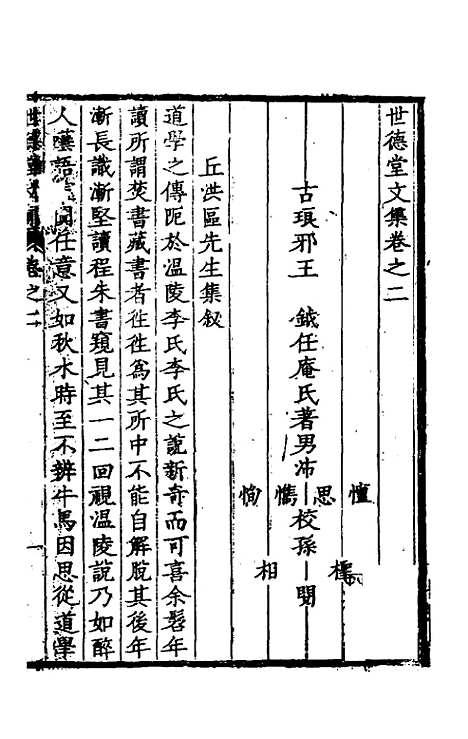 世德堂文集卷之二
古琅邪王　鉞任庵氏著男沛
憻
思
懏
恂
校孫
相
閱
丘洪區先生集叙
道學之傳阨於溫陵李氏李氏之說新奇而可喜余髫年
讀所謂焚書藏書者往往為其所中不能自解脫其後年
漸長識漸堅讀程朱書窺見其一二回視溫陵說乃如醉
人囈語言闌任意又如秋水時至不辨牛馬因思從道學
世德堂文集卷之二
一